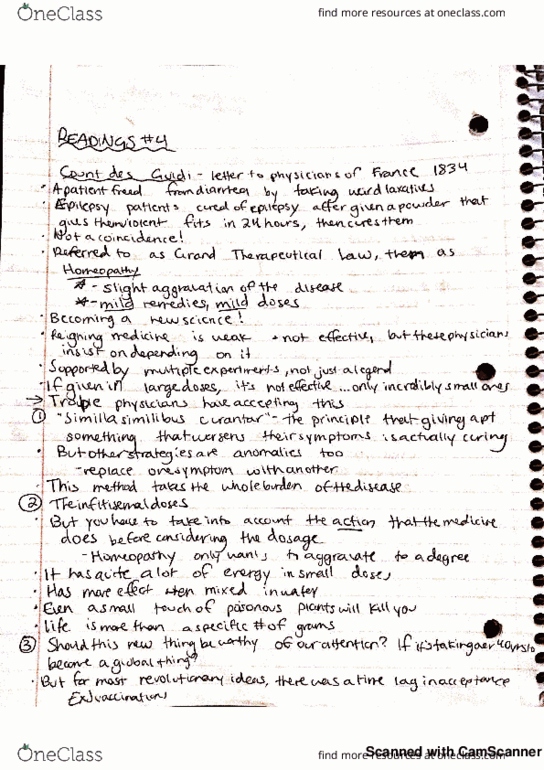 OneClass
find more resources at oneclass.com
READINGS #4
Count des Guidi - letter to physicians of France 1834
· A patient freed from diarrhea by taking weird laxatives
· Epilepsy patients cured of epilepsy after given a powder that
gives them violent fits in 24 hours, then cures them
· Not a coincidence!
· Referred to as Grand Therapeutical Law, them as
Homeopathy
* - slight aggravation of the disease
* - mild remedies, mild doses
· Becoming a new science!
· Reigning medicine is weak + not effective, but these physicians
insist on depending on it
· Supported by multiple experiments, not just a legend
· If given in large doses, it's not effective ... only incredibly small ones
→ Trouple physicians have accepting this
① "Similla similibus curantar" - the principle that giving a pt
something that worsens their symptoms is actually curing
· But other strategies are anomatics too
- replace one symptom with another
· This method takes the whole burden of the disease
② The infitisemal doses
· But you have to take into account the action that the medicine
does before considering the dosage
- Homeopathy only wants to aggravate to a degree
· It has quite a lot of energy in small doses
· Has more effect when mixed in water
· Even a small touch of poisonous plants will kill you
· Life is more than a specific # of grams
③ Should this new thing be worthy of our attention? If it's taking over 40 yrs to
become a global thing?
· But for most revolutionary ideas, there was a time lag in acceptance
Ex) vaccinations
OneClass
find more resources at oneclass.com
Scanned with CamScanner